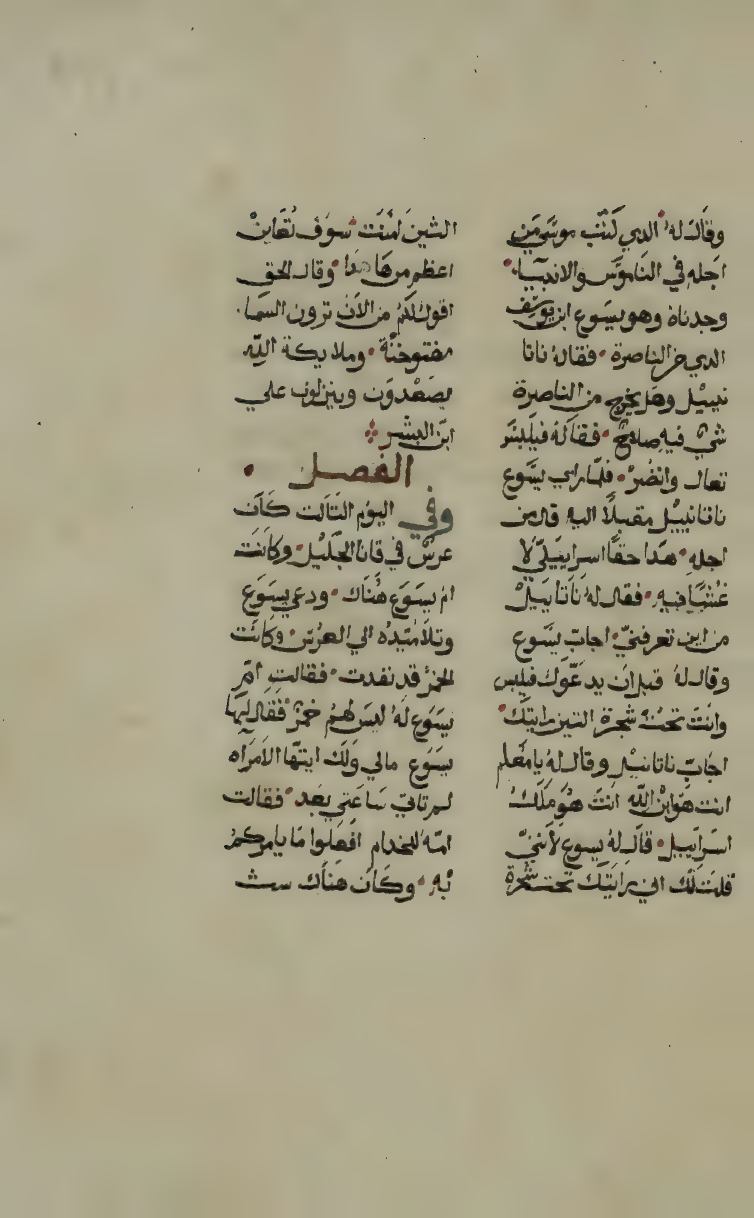 وقال له الدي كتب موسي من
اجله في الناموس والانبيا
وجدناه وهو يسوع ابن يوسف
الدي من الناصرة فقال ناتا
نييل وهل يخرج من الناصرة
شي فيه صلاح فقال له فيلبس
تعال وانضر فلما راي يسوع
ناتانييل مقبلا اليه قال من
اجله هدا حقا اسراييلي لا
غش فيه فقال له ناتانييل
من اين تعرفني اجاب يسوع
وقال له قبل ان يدعوك فيلبس
وانت تحت شجرة التين رايتك
اجاب ناتانييل وقال له يا معلم
انت هو ابن الله انت هو ملك
اسراييل قال له يسوع لانني
قلت لك اني رايتك تحت شجرة
التين امنت سوف تعاين
اعظم من هادا وقال الحق
اقول لكم من الان ترون السما
مفتوحة وملايكة الله
يصعدون وينزلون علي
ابن البشر
الفصل
وفي اليوم التالت كان
عرس في قانا الجليل وكانت
ام يسوع هناك ودعي يسوع
وتلاميده الي العرس وكانت
الخمر قد نفدت فقالت ام
يسوع له ليس لهم خمر فقال لها
يسوع مالي ولك ايتها الامراه
لم تاتي ساعتي بعد فقالت
امه للخدام افعلوا ما يامركم
به وكان هناك ست